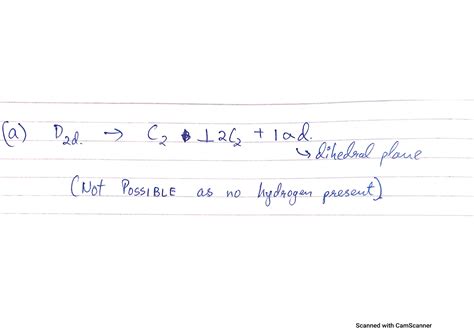 (a) D2d. → C2 ⊥ 2C2 + 1αd.
↳ dihedral plane
(NOT POSSIBLE as no hydrogen present)
Scanned with CamScanner